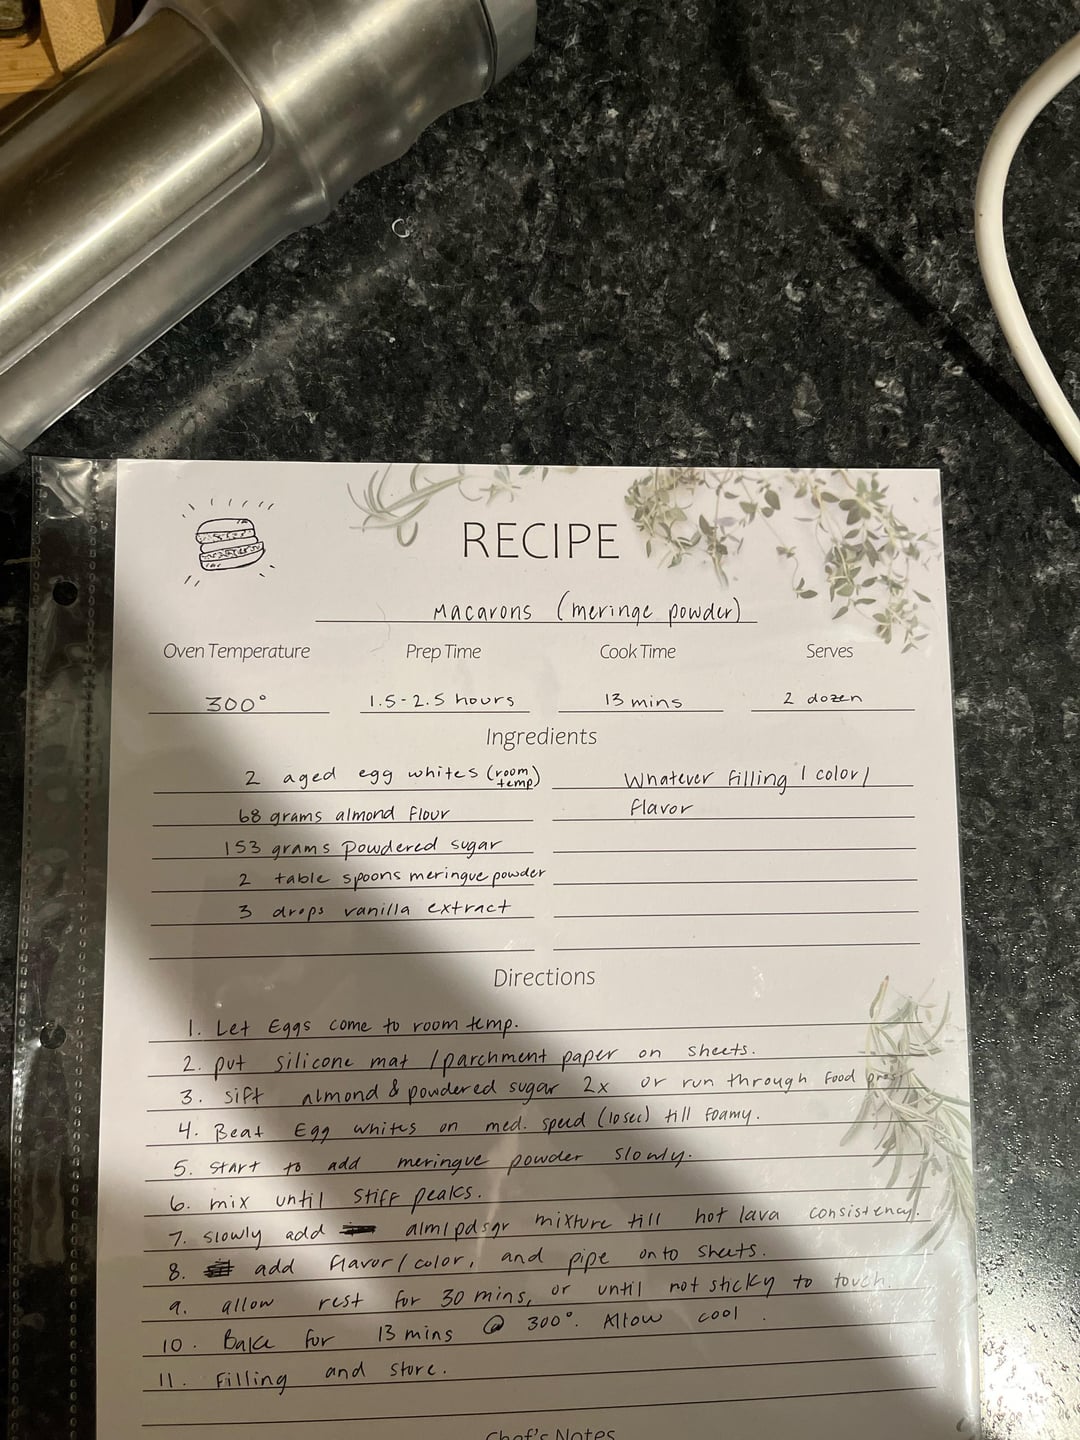 RECIPE
Macarons (meringe powder)
Oven Temperature Prep Time Cook Time Serves
300° 1.5-2.5 hours 13 mins 2 dozen
Ingredients
2 aged egg whites (room temp) Whatever filling / color/
68 grams almond flour flavor
153 grams powdered sugar
2 table spoons meringue powder
3 drops vanilla extract
Directions
1. Let Eggs come to room temp.
2. put silicone mat / parchment paper on sheets.
3. sift almond & powdered sugar 2x or run through food
4. Beat Egg whites on med. speed (10sec) till foamy.
5. start to add meringue powder slowly.
6. mix until stiff peaks.
7. slowly add alm/pdsgr mixture till hot lava consistency.
8. add flavor/color, and pipe onto sheets.
9. allow rest for 30 mins, or until not sticky to touch.
10. Bake for 13 mins @ 300°. Allow cool.
11. Filling and store.
Chef's Notes